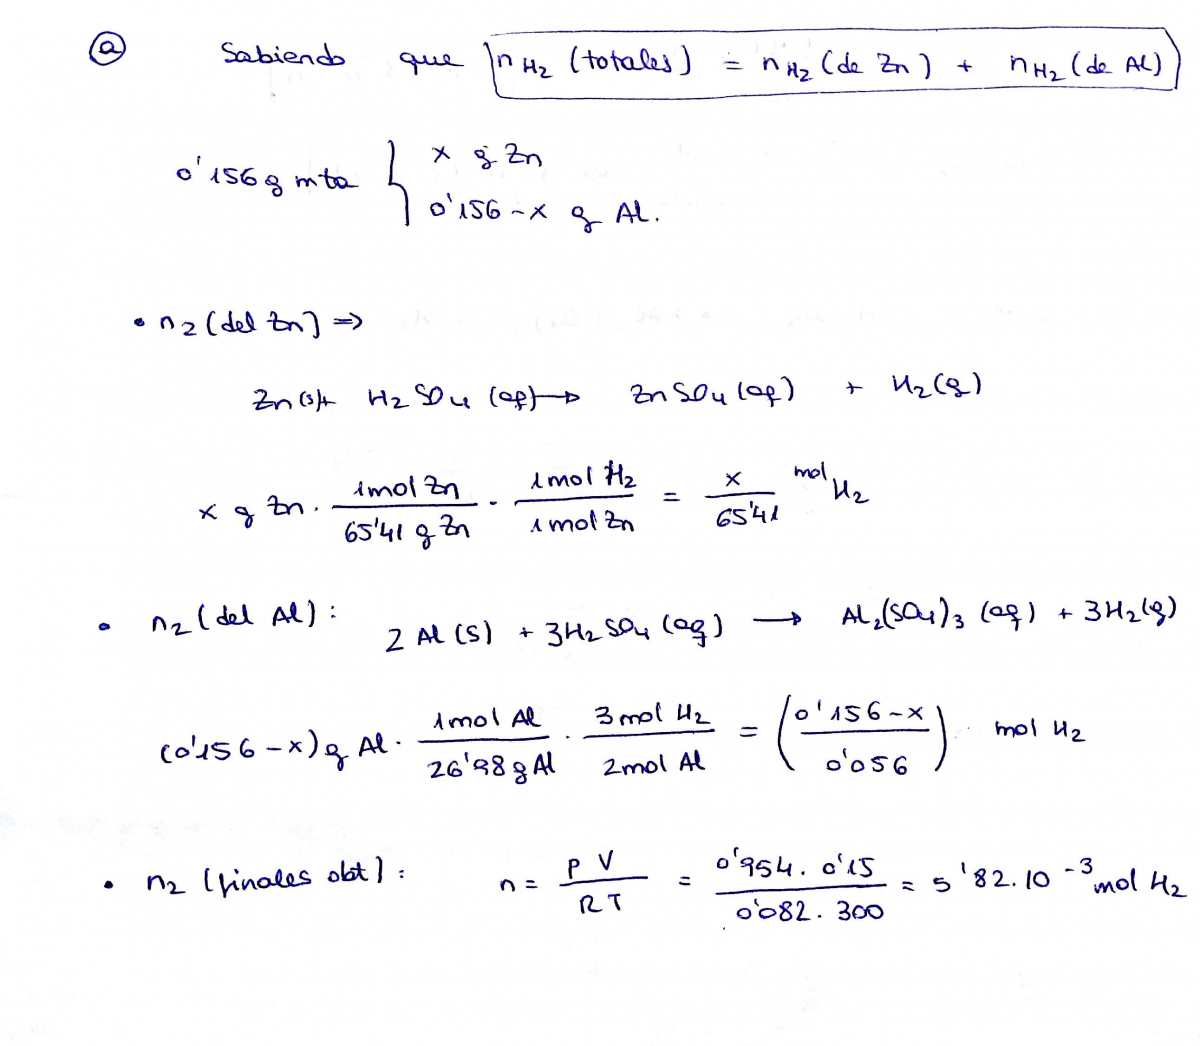 ⓐ Sabiendo que n H2 (totales) = n H2 (de Zn) + n H2 (de Al)
0'156 g mta { x g Zn
0'156 - x g Al.
• n2 (del Zn) ⇒
Zn (s) + H2SO4 (aq) → ZnSO4 (aq) + H2 (g)
x g Zn · 1mol Zn / 65'41 g Zn · 1mol H2 / 1mol Zn = x / 65'41 mol H2
• n2 (del Al): 2 Al (s) + 3H2SO4 (aq) → Al2(SO4)3 (aq) + 3H2(g)
(0'156 - x) g Al · 1mol Al / 26'98 g Al · 3mol H2 / 2mol Al = (0'156 - x / 0'056) mol H2
• n2 (finales obt): n = P V / R T = 0'954 · 0'15 / 0'082 · 300 = 5'82 · 10⁻³ mol H2